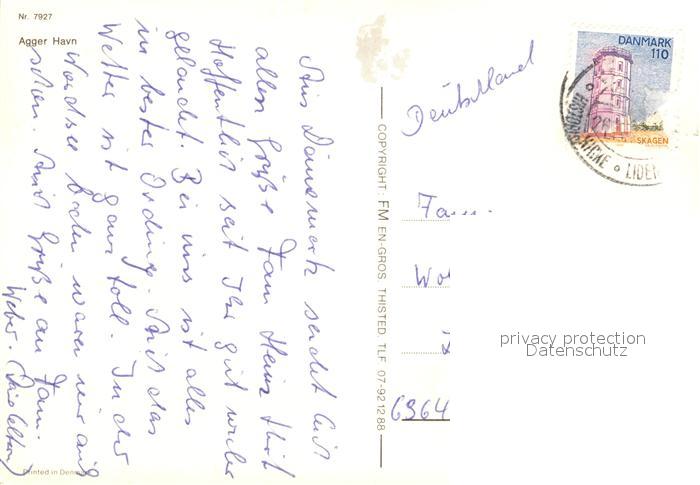 Nr. 7927
Agger Havn
Aus Dänemark sendet Euch
allen Grüße Fam Heinz Hirt
Hoffentlich seit Ihr gut wieder
gelandet. Bei uns ist alles
in bester Ordnung. Auch das
Wetter ist ganz toll. In der
Nordsee baden waren wir auch
schon. Auch Grüße an Fam.
Weber. (Die Eltern)
Printed in Denmark
COPYRIGHT: FM EN-GROS. THISTED. TLF. 07-92 12 88
DANMARK
110
SKAGEN
LIDEN
Deutschland
Fa
Wo
6364
privacy protection
Datenschutz